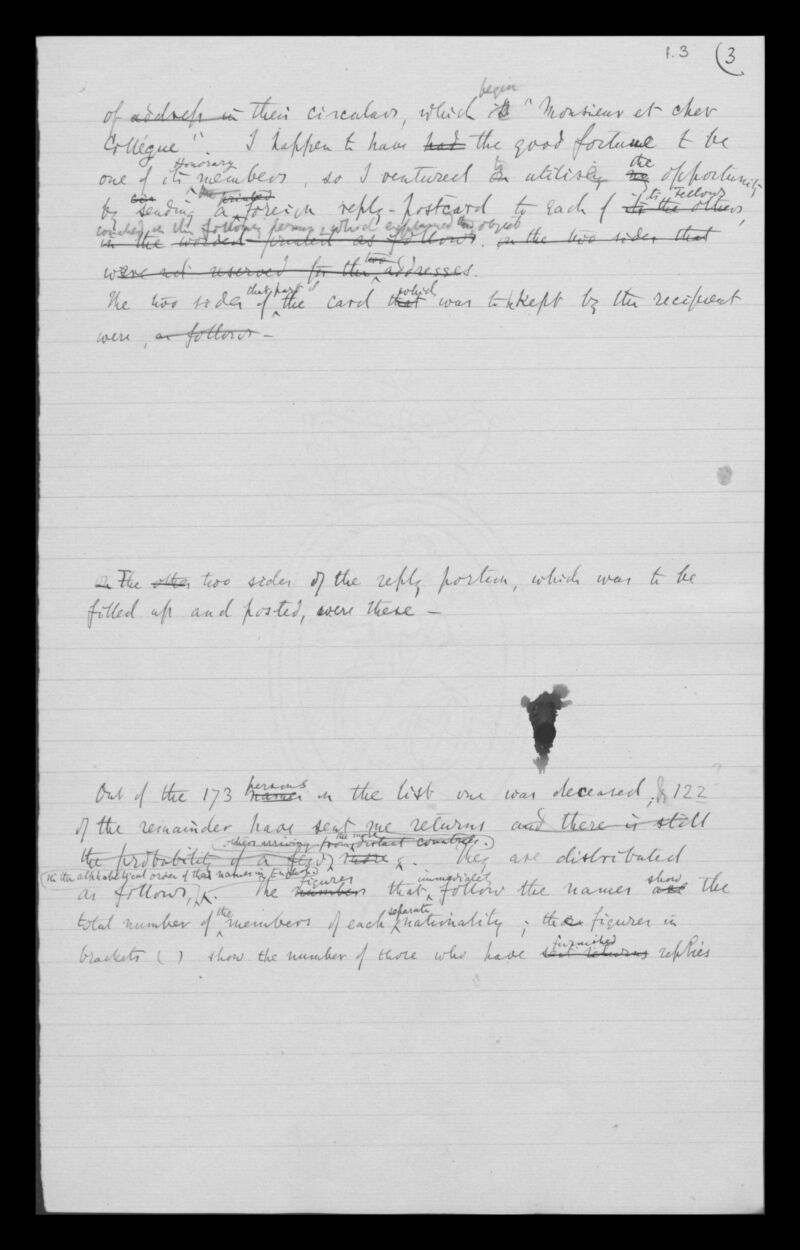 1.3 (3
begin
of address in their circulars, which is "Monsieur et cher
Collégue". I happen to have had the good fortune to be
Honorary
one of its members, so I ventured to utilise the opportunity
by sending a printed foreign reply-postcard to each of its Fellows to the others,
worded in the following terms, which explained its object
in the worded printed as follows. on the two sides that
were not reserved for the two addresses.
that part of which
The two sides of the card that was to be kept by the recipient
were, as follows –
on The other two sides of the reply portion, which was to be
filled up and posted, were these –
persons
Out of the 173 names in the list one was deceased, & 122
of the remainder have sent me returns and there is still
others arriving from the more distant countries.)
the probability of a few more. They are distributed
(in the alphabetical order of their names in English)
figures immediately show
as follows. The numbers that follow the names are the
the separate
total number of members of each nationality; the figures in
furnished
brackets ( ) show the number of those who have sent returns replies